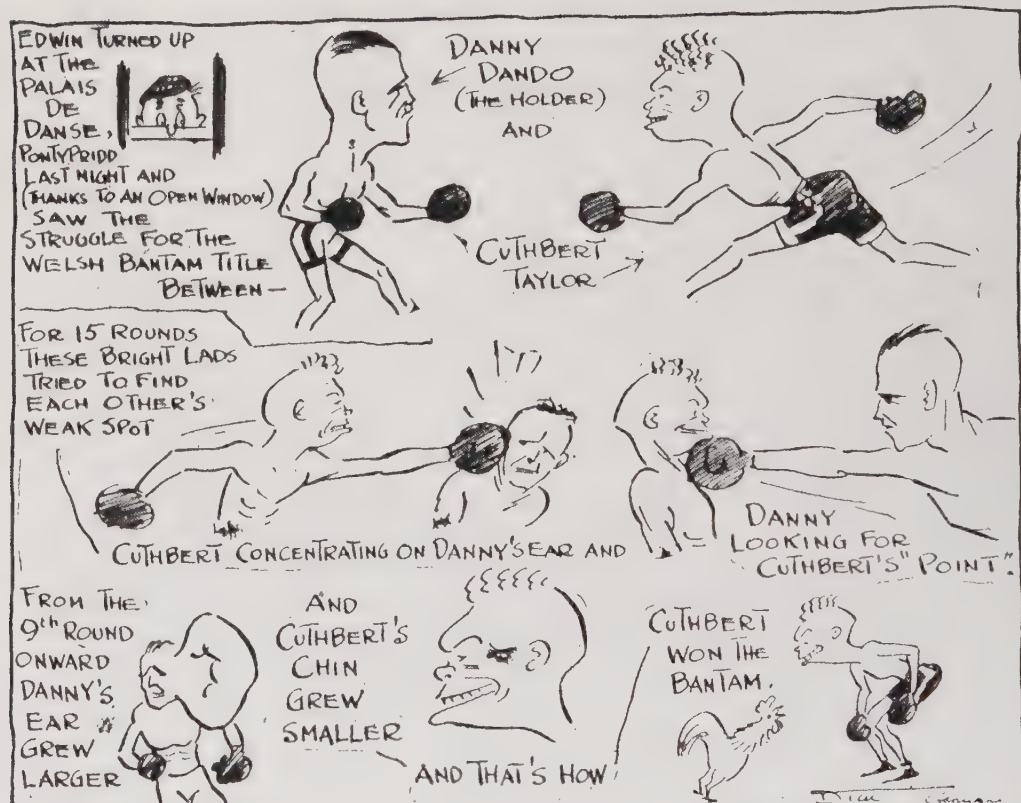 EDWIN TURNED UP
AT THE
PALAIS
DE
DANSE,
PONTYPRIDD
LAST NIGHT AND
(THANKS TO AN OPEN WINDOW)
SAW THE
STRUGGLE FOR THE
WELSH BANTAM TITLE
BETWEEN —
DANNY
DANDO
(THE HOLDER)
AND
CUTHBERT
TAYLOR
FOR 15 ROUNDS
THESE BRIGHT LADS
TRIED TO FIND
EACH OTHER'S
WEAK SPOT
CUTHBERT CONCENTRATING ON DANNY'S EAR AND
DANNY
LOOKING FOR
CUTHBERT'S "POINT".
FROM THE
9th ROUND
ONWARD
DANNY'S
EAR
GREW
LARGER
AND
CUTHBERT'S
CHIN
GREW
SMALLER
AND THAT'S HOW
CUTHBERT
WON THE
BANTAM.